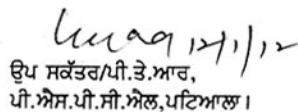 12/1/12
ਉਪ ਸਕੱਤਰ/ਪੀ.ਤੇ.ਆਰ,
ਪੀ.ਐਸ.ਪੀ.ਸੀ.ਐਲ,ਪਟਿਆਲਾ।